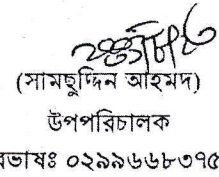 (সামছুদ্দিন আহমদ)
উপপরিচালক
০২৯৯৬৬৮৩৭৫